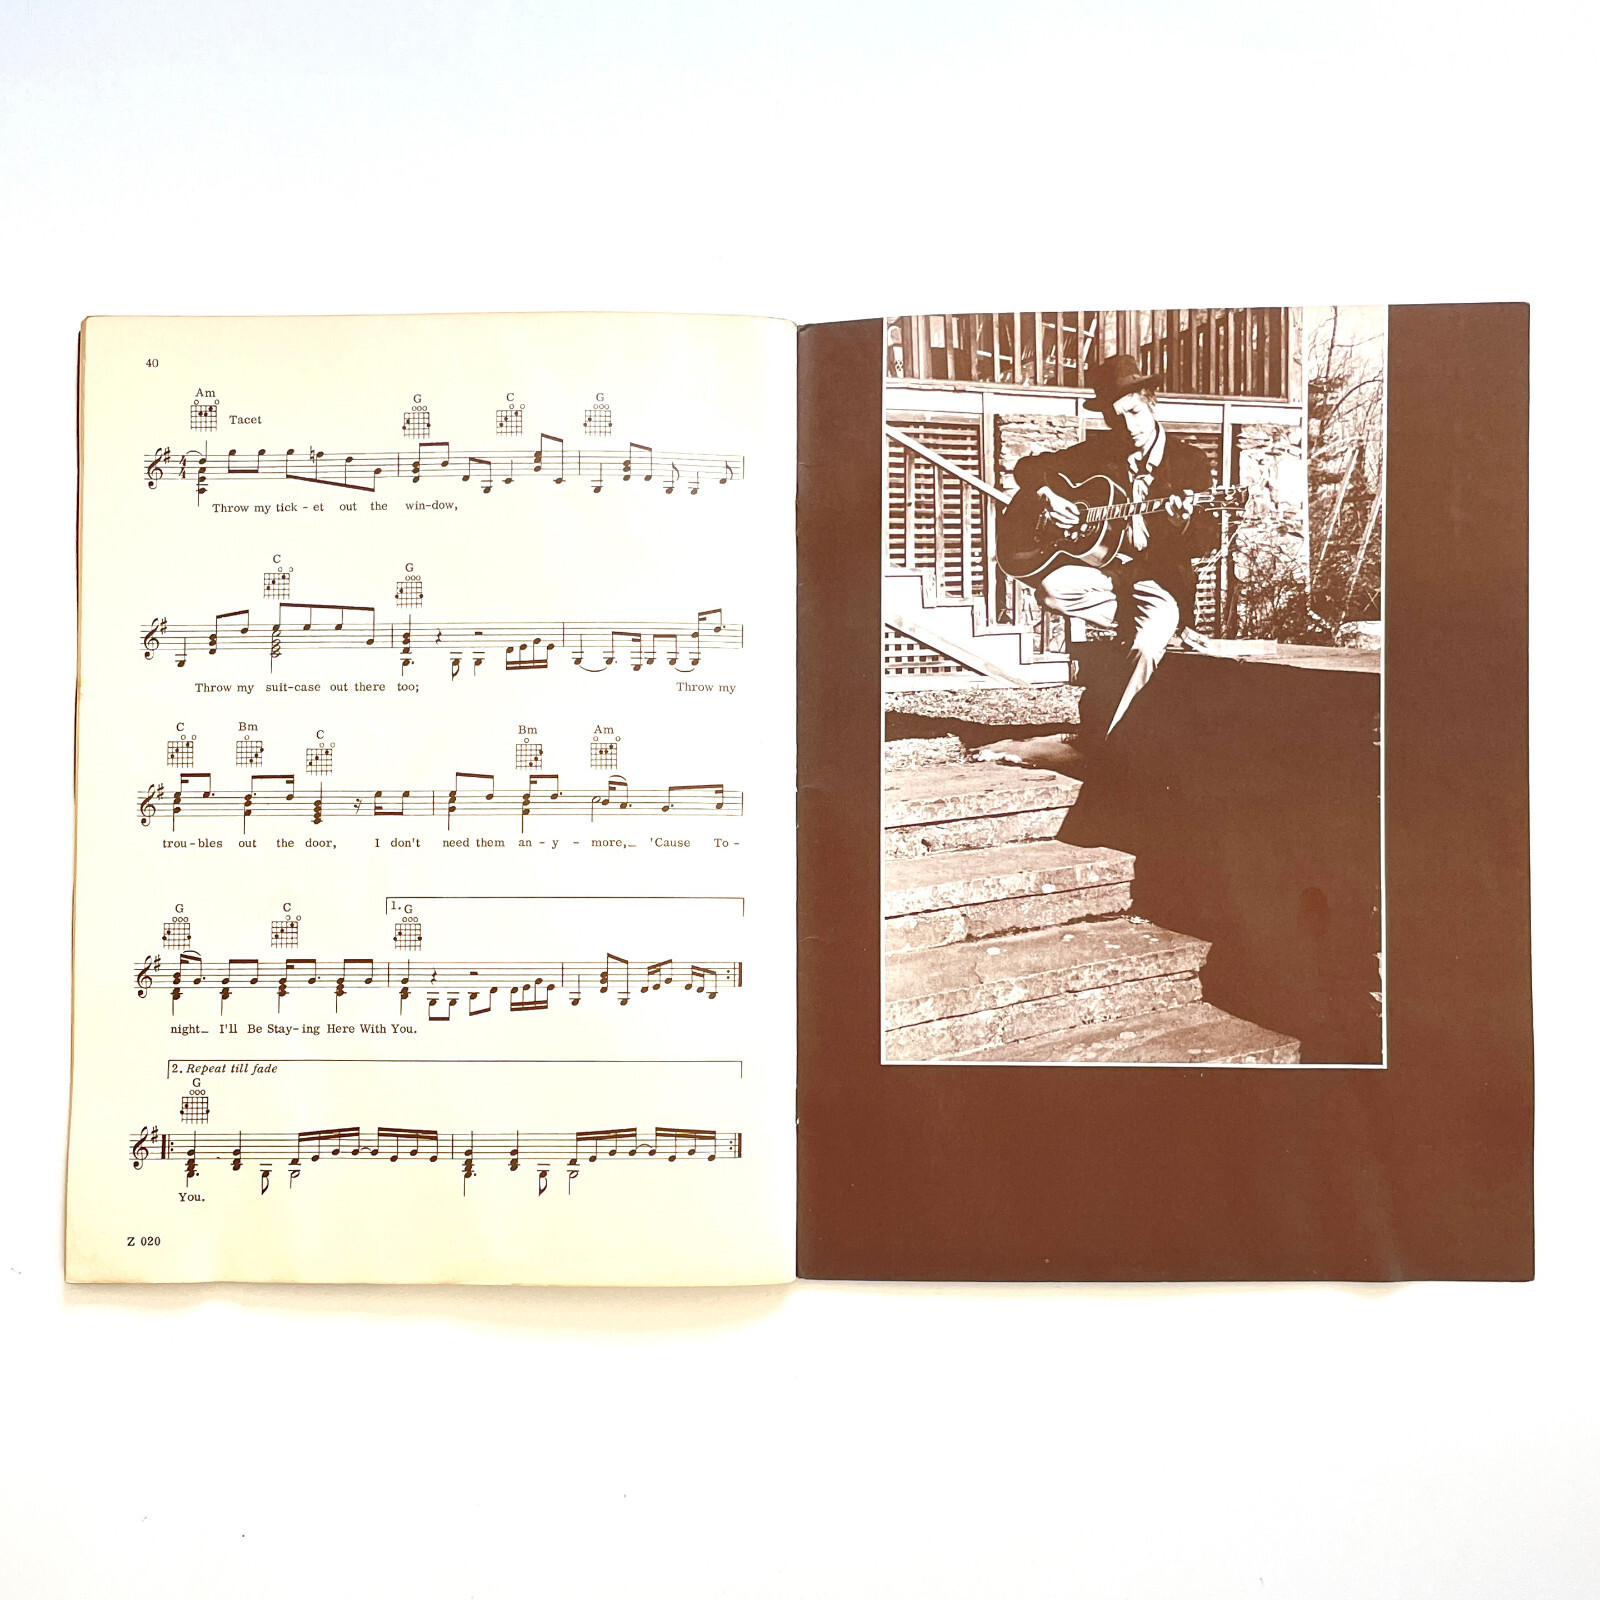 40
Am G C G
Tacet
Throw my tick - et out the win-dow,
C G
Throw my suit-case out there too; Throw my
C Bm C Bm Am
trou-bles out the door, I don't need them an - y - more,_ 'Cause To -
G C 1. G
night_ I'll Be Stay-ing Here With You.
2. Repeat till fade
G
You.
Z 020